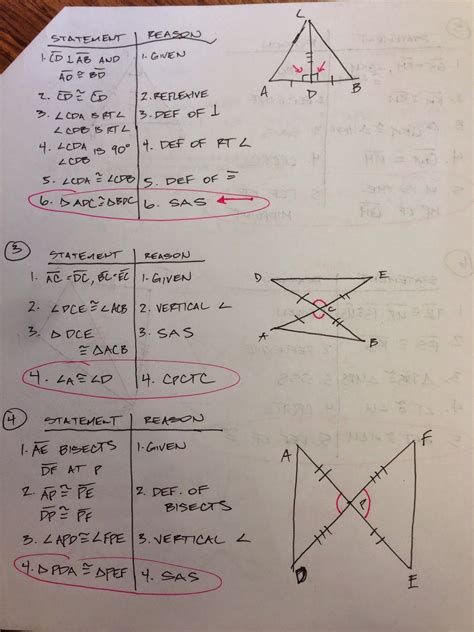 STATEMENT REASON
1. CD ⊥ AB AND 1. GIVEN
AD ≅ BD
2. CD ≅ CD 2. REFLEXIVE
3. ∠CDA IS RT∠ 3. DEF OF ⊥
∠CDB IS RT∠
4. ∠CDA IS 90° 4. DEF OF RT ∠
∠CDB
5. ∠CDA ≅ ∠CDB 5. DEF OF ≅
6. △ADC ≅ △BDC 6. SAS
C
A D B
3
STATEMENT REASON
1. AC = DC, BC = EC 1. GIVEN
2. ∠DCE ≅ ∠ACB 2. VERTICAL ∠
3. △DCE 3. SAS
≅ △ACB
4. ∠A ≅ ∠D 4. CPCTC
D E
C
A B
4
STATEMENT REASON
1. AE BISECTS 1. GIVEN
DF AT P
2. AP ≅ PE 2. DEF. OF
DP ≅ PF BISECTS
3. ∠APD ≅ ∠FPE 3. VERTICAL ∠
4. △PDA ≅ △PEF 4. SAS
A F
P
D E